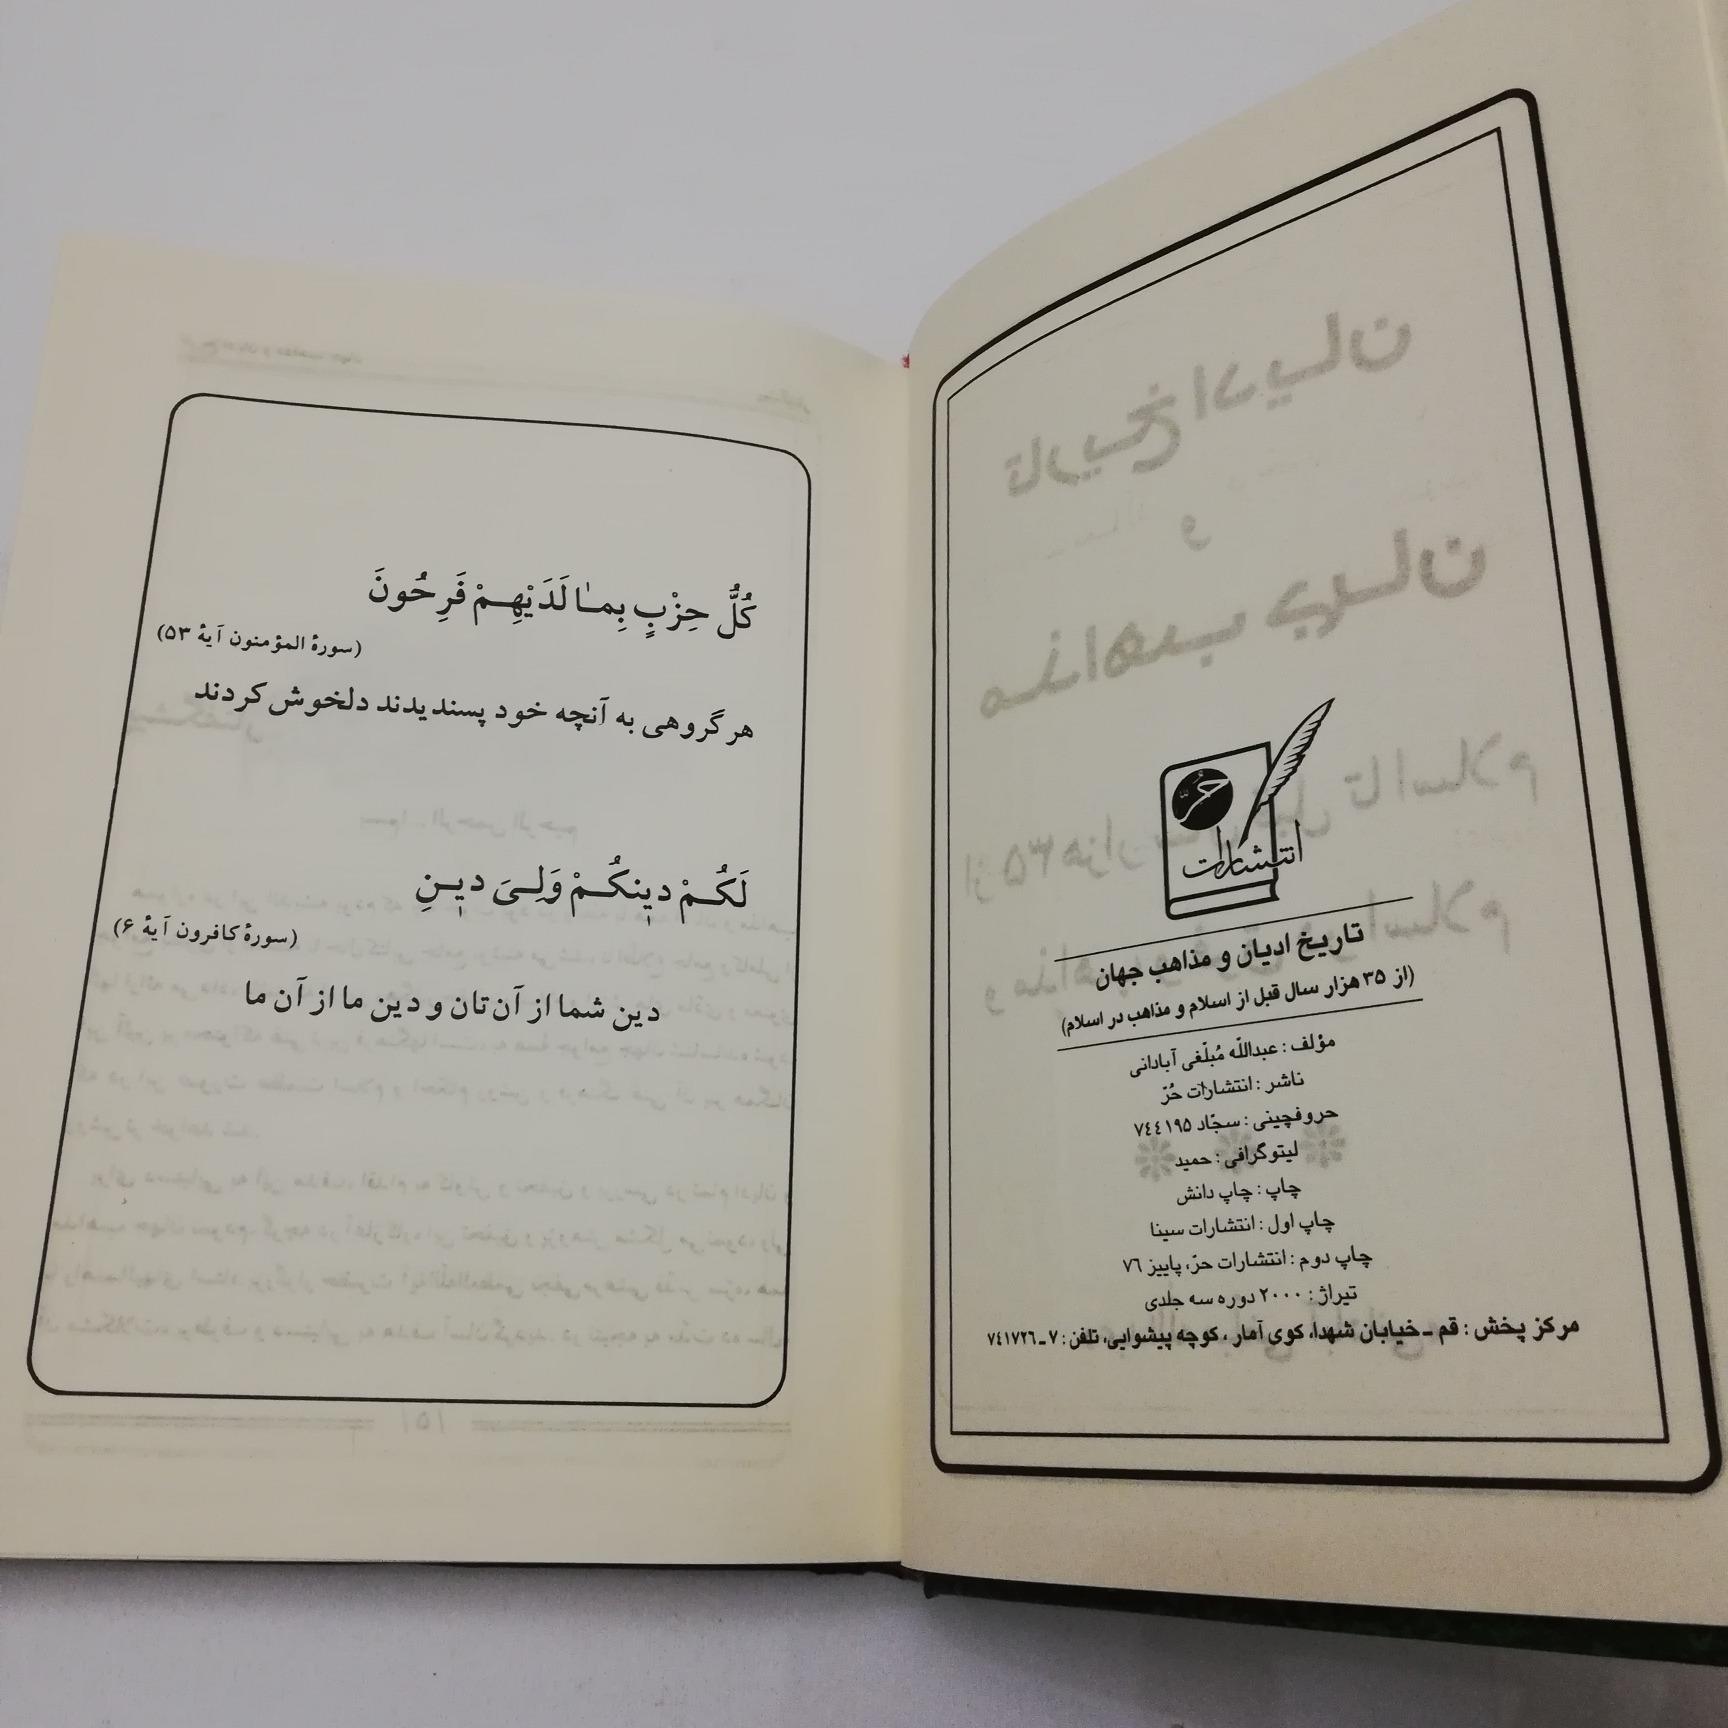 حُرّ
انتشارات
تاریخ ادیان و مذاهب جهان
(از ۳۵ هزار سال قبل از اسلام و مذاهب در اسلام)
مؤلف : عبداللّه مُبلّغی آبادانی
ناشر : انتشارات حُرّ
حروفچینی : سجّاد ۷۴۴۱۹۵
لیتوگرافی : حمید
چاپ : چاپ دانش
چاپ اول : انتشارات سینا
چاپ دوم : انتشارات حرّ، پاییز ۷۶
تیراژ : ۲۰۰۰ دوره سه جلدی
مرکز پخش : قم ـ خیابان شهدا، کوی آمار ، کوچه پیشوایی، تلفن : ۷ـ۷۴۱۷۲۶
كُلُّ حِزْبٍ بِمٰا لَدَيْهِمْ فَرِحُونَ
(سورهٔ المؤمنون آیهٔ ۵۳)
هر گروهی به آنچه خود پسندیدند دلخوش کردند
لَكُمْ دينِكُمْ وَلِىَ دينِ
(سورهٔ کافرون آیهٔ ۶)
دین شما از آن تان و دین ما از آن ما